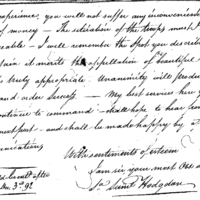 xperience, you will not suffer any inconvenience
of money — The situation of the troops must
eable — I well remember the Spot you describe
tain it merits the appellation of beautiful
is truly appropriate — Unanimity will produce
and order success — My best service
continue to command — shall hope to hear from
next post — and shall be made happy by a
nications
With sentiments of esteem
I am sir, your most Ob
Saml Hodgdon
after
Dec. 3rd 92